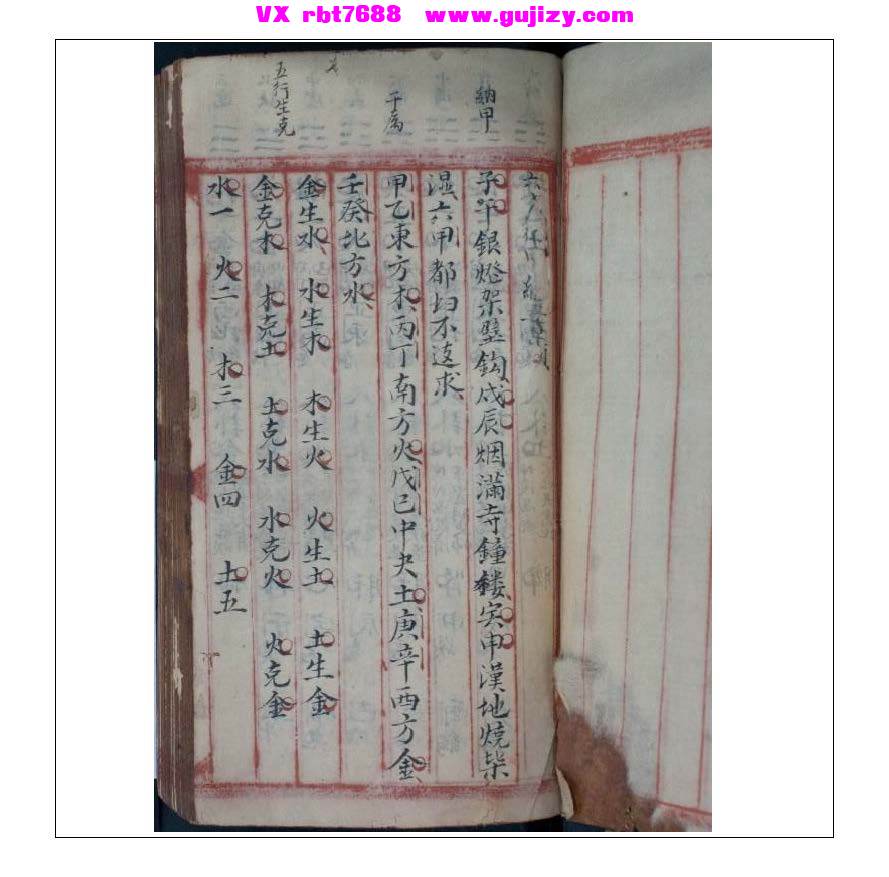 VX rbt7688 www.gujizy.com
納甲
子午銀燈架壁鈎戍辰烟滿寺鐘樓寅申漢地燒柴
濕六甲都均不這求
干属
甲乙東方木丙丁南方火戊已中央土庚辛西方金
壬癸北方水
五行生克
金生水 水生木 木生火 火生土 土生金
金克木 木克土 土克水 水克火 火克金
水一 火二 木三 金四 土五